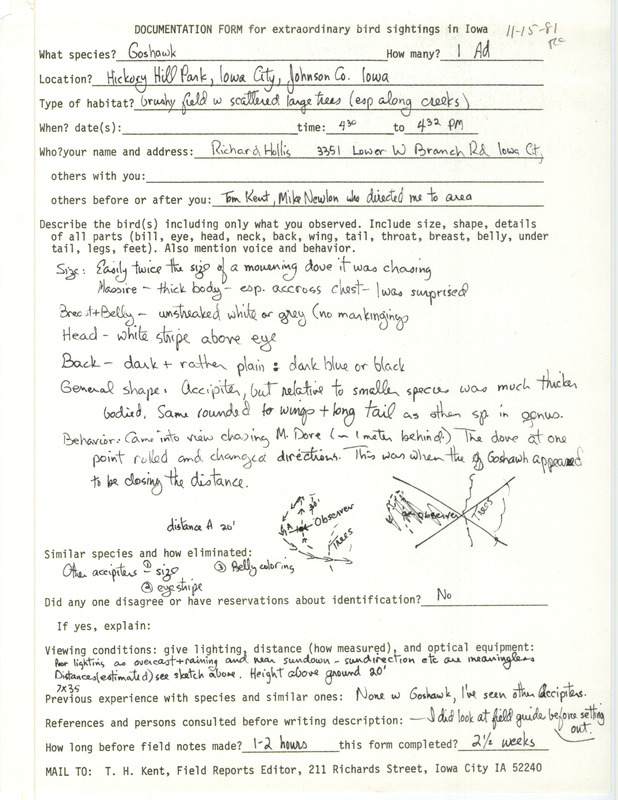 DOCUMENTATION FORM for extraordinary bird sightings in Iowa 11-15-81
rec
What species? Goshawk How many? 1 Ad
Location? Hickory Hill Park, Iowa City, Johnson Co. Iowa
Type of habitat? brushy field w scattered large trees (esp along creeks)
When? date(s): time: 4 30 to 4 32 PM
Who?your name and address: Richard Hollis 3351 Lower W Branch Rd Iowa Ct,
others with you:
others before or after you: Tom Kent, Mike Newlon who directed me to area
Describe the bird(s) including only what you observed. Include size, shape, details
of all parts (bill, eye, head, neck, back, wing, tail, throat, breast, belly, under
tail, legs, feet). Also mention voice and behavior.
Size: Easily twice the size of a mourning dove it was chasing
Massive - thick body - esp. accross chest - I was surprised
Breast+Belly - unstreaked white or grey (no markingings
Head - white stripe above eye
Back - dark + rather plain : dark blue or black
General shape: Accipiter, but relative to smaller species was much thicker
bodied. Same rounded to wings + long tail as other sp in genus.
Behavior: Came into view chasing M. Dove (~ 1 meter behind!) The dove at one
point rolled and changed directions. This was when the Goshawk appeared
to be closing the distance.
distance A 20'
30'
A
Observer
Trees
Observer
Trees
Similar species and how eliminated:
Other accipiters ① - size ③ Belly coloring
② eyestripe
Did any one disagree or have reservations about identification? No
If yes, explain:
Viewing conditions: give lighting, distance (how measured), and optical equipment:
Poor lighting as overcast + raining and near sundown - sundirection etc are meaningless
Distances (estimated) see sketch above. Height above ground 20'
7x35
Previous experience with species and similar ones: None w Goshawk, I've seen other Accipiters.
References and persons consulted before writing description: - I did look at field guide before setting
out.
How long before field notes made? 1-2 hours this form completed? 2 1/2 weeks
MAIL TO: T. H. Kent, Field Reports Editor, 211 Richards Street, Iowa City IA 52240